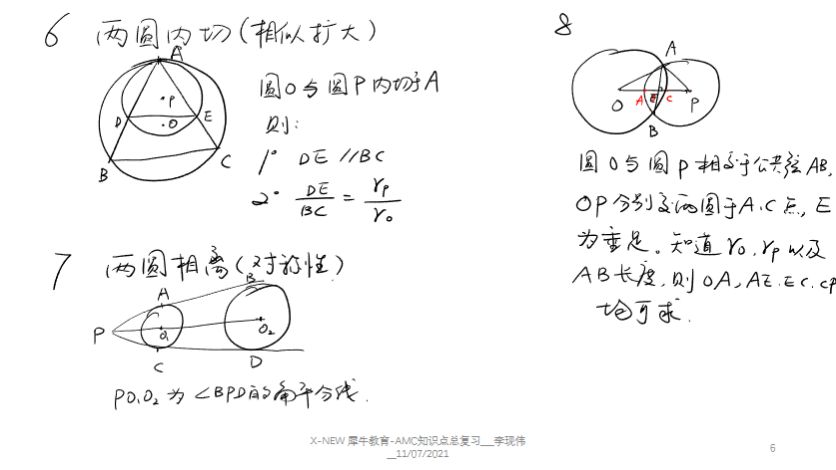 6 两圆内切(相似扩大)
A
P
D O E
B C
圆O与圆P内切于A
则:
1° DE//BC
2° DE/BC = r_P/r_O
7 两圆相离(对称性)
A B
P O₁ O₂
C D
PO₁O₂为∠BPD的角平分线.
8
A
O A E C P
B
圆O与圆P相交于公共弦AB,
OP分别交两圆于A.C点, E
为垂足。知道r_O, r_P以及
AB长度,则OA, AE. EC. CP
均可求.
X-NEW 犀牛教育-AMC知识点总复习___李现伟
__11/07/2021
6